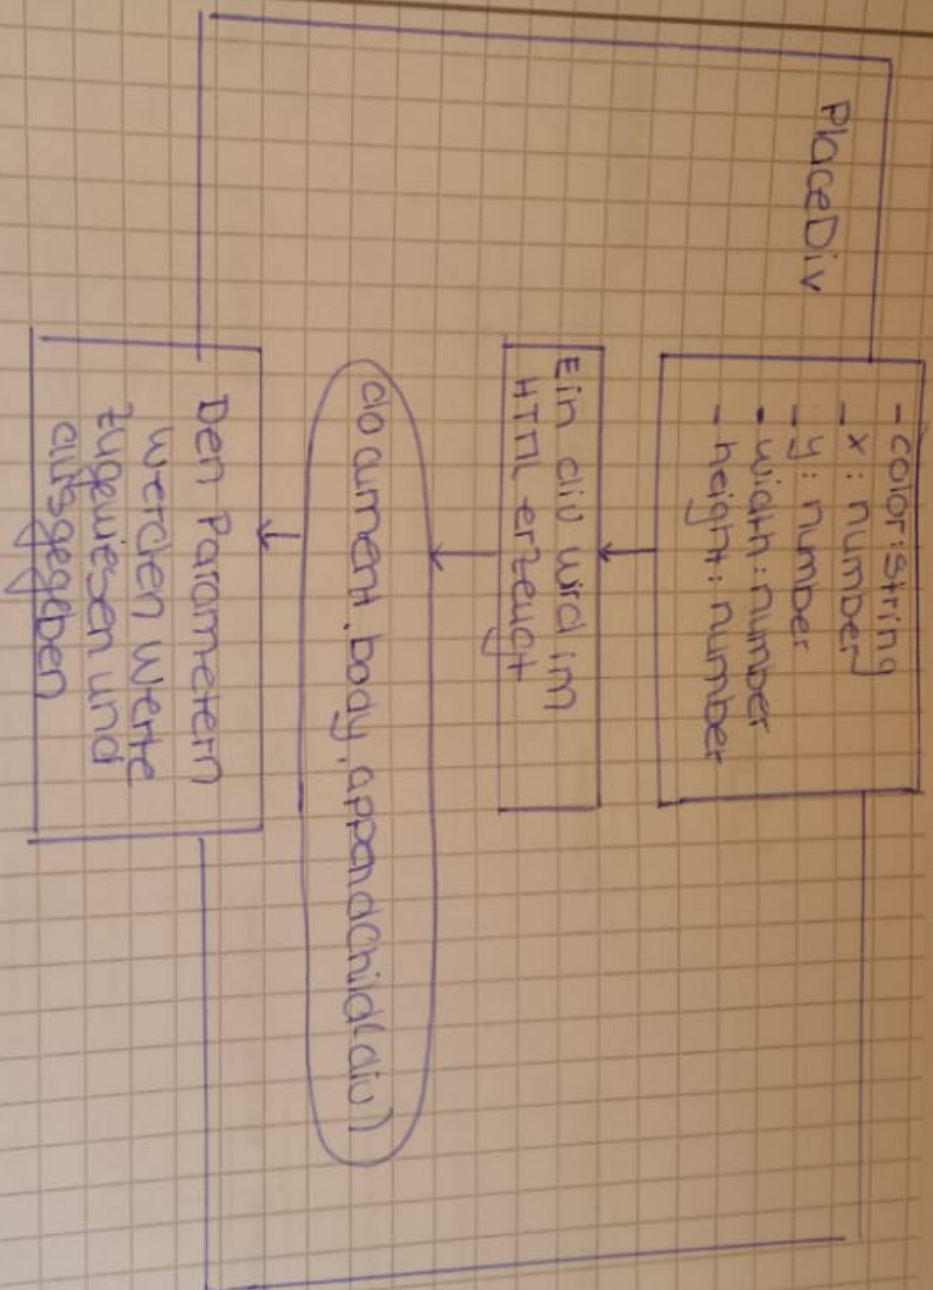 PlaceDiv
- color: string
- x: number
- y: number
- width: number
- height: number
Ein div wird im
HTML erzeugt
document.body.appendChild(div)
Den Parametern
werden Werte
zugewiesen und
ausgegeben